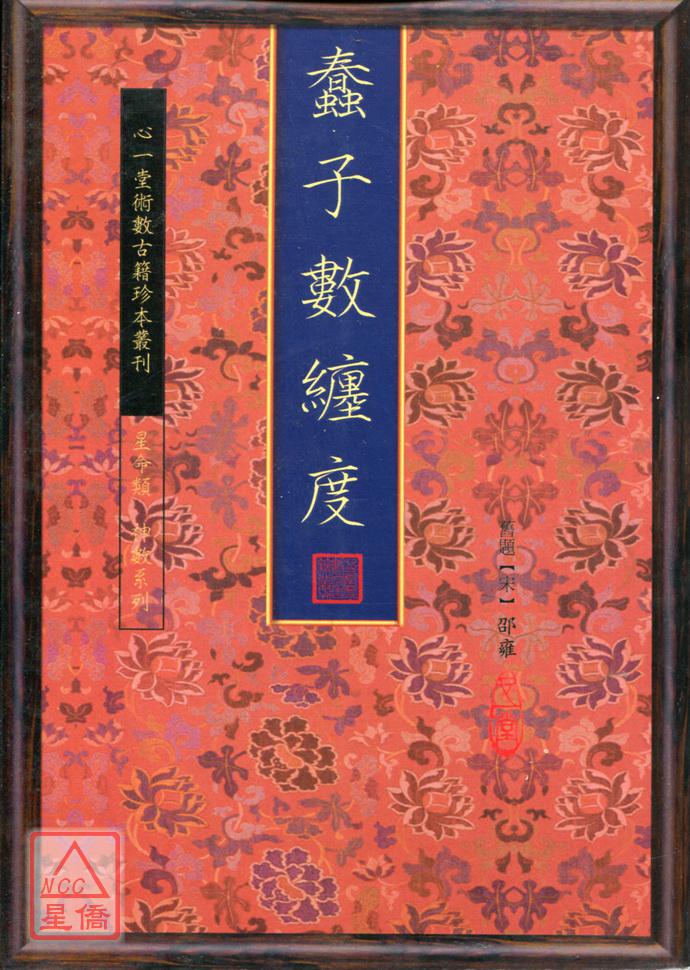 蠢子數纏度
舊題【宋】邵雍
心一堂術數古籍珍本叢刊
星命類 神數系列
NCC
星僑